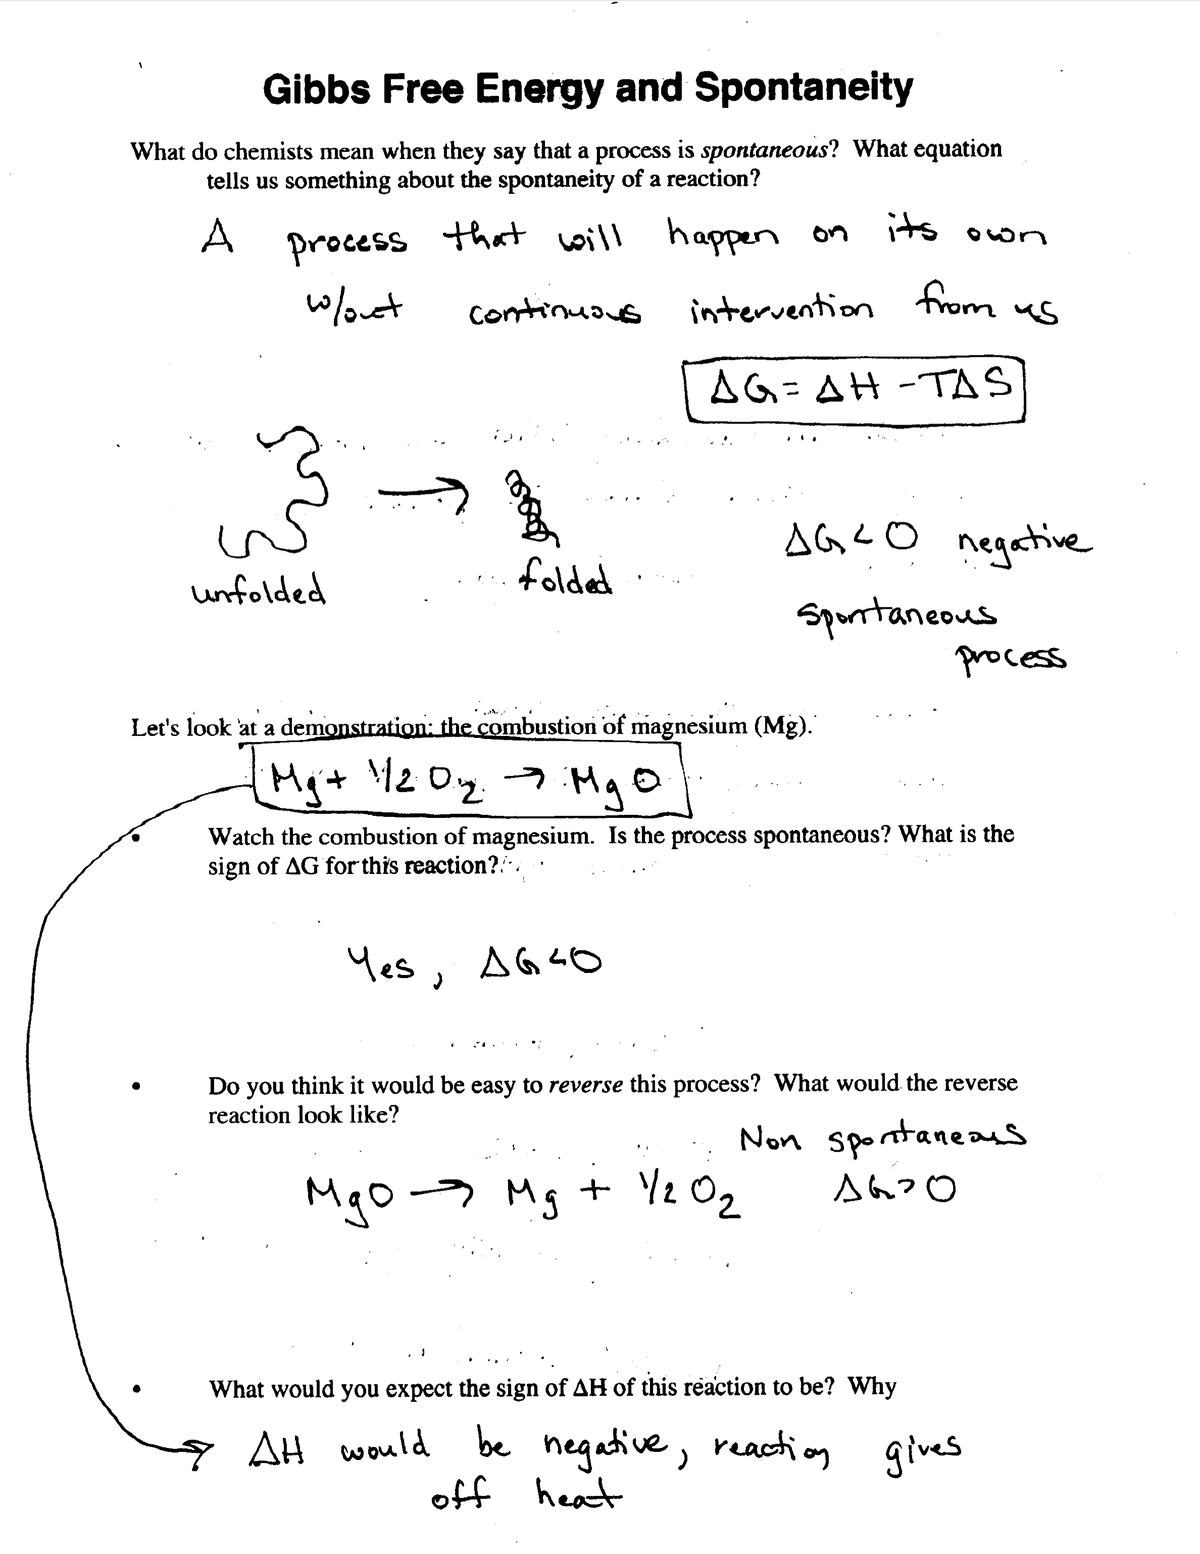 Gibbs Free Energy and Spontaneity
What do chemists mean when they say that a process is spontaneous? What equation
tells us something about the spontaneity of a reaction?
A process that will happen on its own
w/out continuous intervention from us
ΔG = ΔH - TΔS
unfolded
folded
ΔG < 0 negative
spontaneous
process
Let's look at a demonstration: the combustion of magnesium (Mg).
Mg + 1/2 O2 → MgO
• Watch the combustion of magnesium. Is the process spontaneous? What is the
sign of ΔG for this reaction?
Yes, ΔG<0
• Do you think it would be easy to reverse this process? What would the reverse
reaction look like?
Non spontaneous
MgO → Mg + 1/2 O2 ΔG>0
• What would you expect the sign of ΔH of this reaction to be? Why
ΔH would be negative, reaction gives
off heat